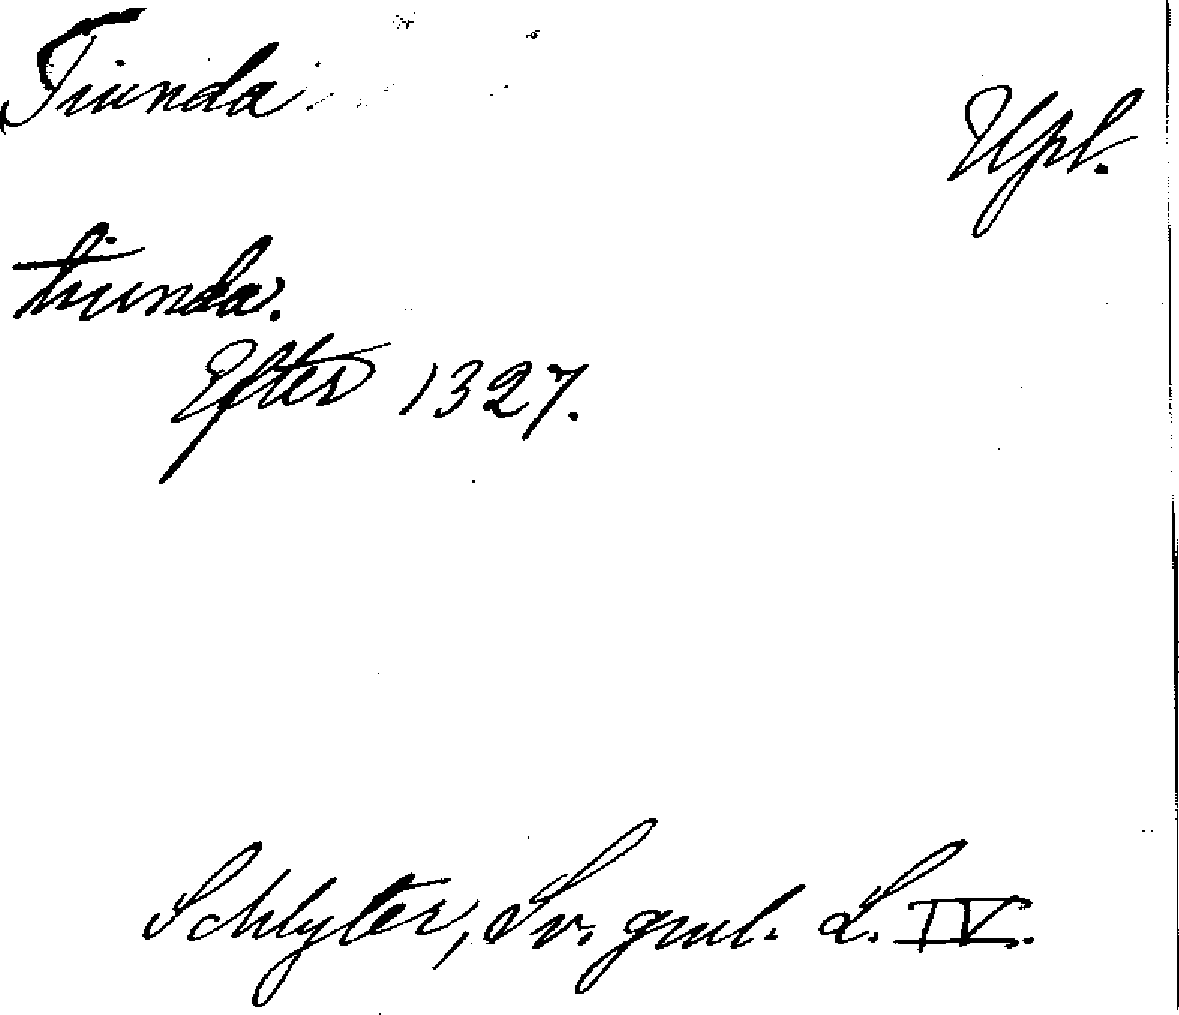 Tiunda
Upl.
tiunda.
Efter 1327.
Schlyter, Sv. gml. L. IV.